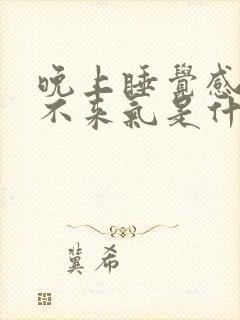 晚上睡覺感
不来氣是什
冀希